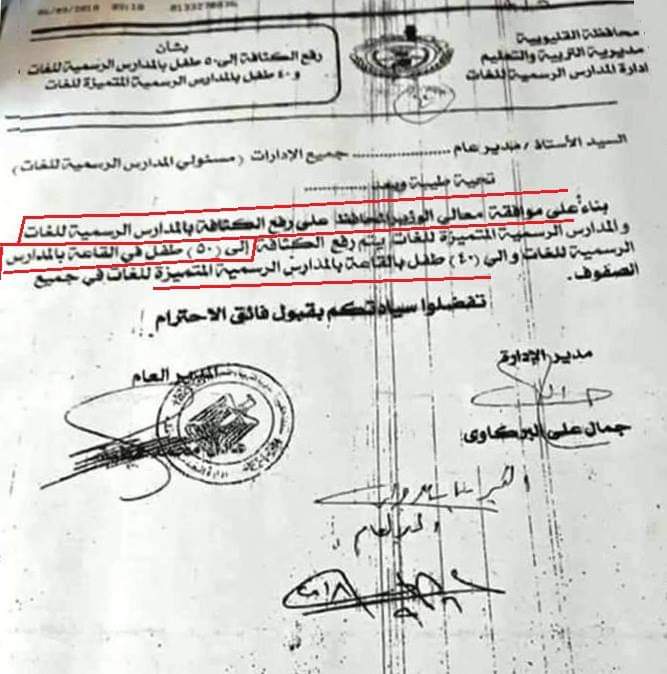 06/09/2018 03:18 0133270836
محافظة القليوبية
مديرية التربية والتعليم
ادارة المدارس الرسمية للغات
بشأن
رفع الكثافة إلى ٥٠ طفل بالمدارس الرسمية للغات
و ٤٠ طفل بالمدارس الرسمية المتميزة للغات
السيد الأستاذ / مدير عام .................. جميع الإدارات ( مسئولي المدارس الرسمية للغات )
تحية طيبة وبعد ............
بناءً على موافقة معالي الوزير المحافظ على رفع الكثافة بالمدارس الرسمية للغات
والمدارس الرسمية المتميزة للغات يتم رفع الكثافة إلى (٥٠) طفل في القاعة بالمدارس
الرسمية للغات والى (٤٠) طفل بالقاعة بالمدارس الرسمية المتميزة للغات في جميع
الصفوف.
تفضلوا سيادتكم بقبول فائق الاحترام
مدير الإدارة
المدير العام
جمال على البركاوى